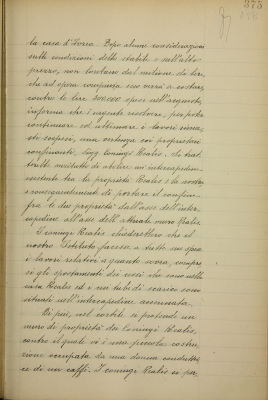 375
la casa d'Forno. Dopo alcune considerazioni
sulle condizioni dello stabile e sull'alto
prezzo, non lontano dal milione di lire,
che ad opera compiuta esso verrà a costare,
contro le lire 300.000 spese nell'acquisto,
informa che è urgente risolvere, per poter
continuare ed ultimare i lavori rima-
sti sospesi, una vertenza coi proprietari
confinanti, Sigg. Coniugi Realis. Si trat-
terebbe anzitutto di abolire un intercapedine
esistente tra la proprietà Realis e la nostra
e conseguentemente di portare il confine
fra le due proprietà dall'asse dell'inter-
capedine all'asse dell'attuale muro Realis.
I coniugi Realis chiederebbero che il
nostro Istituto facesse a tutte sue spese
i lavori relativi a quanto sovra, compre-
si gli spostamenti dei cessi che sono nella
casa Realis ed i un tubo di scarico sono
situati nell'intercapedine accennata.
Di più, nel cortile si protende un
muro di proprietà dei Coniugi Realis,
contro il quale vi è una piccola costru-
zione occupata da una donna conduttri-
ce di un caffè. I coniugi Realis si per